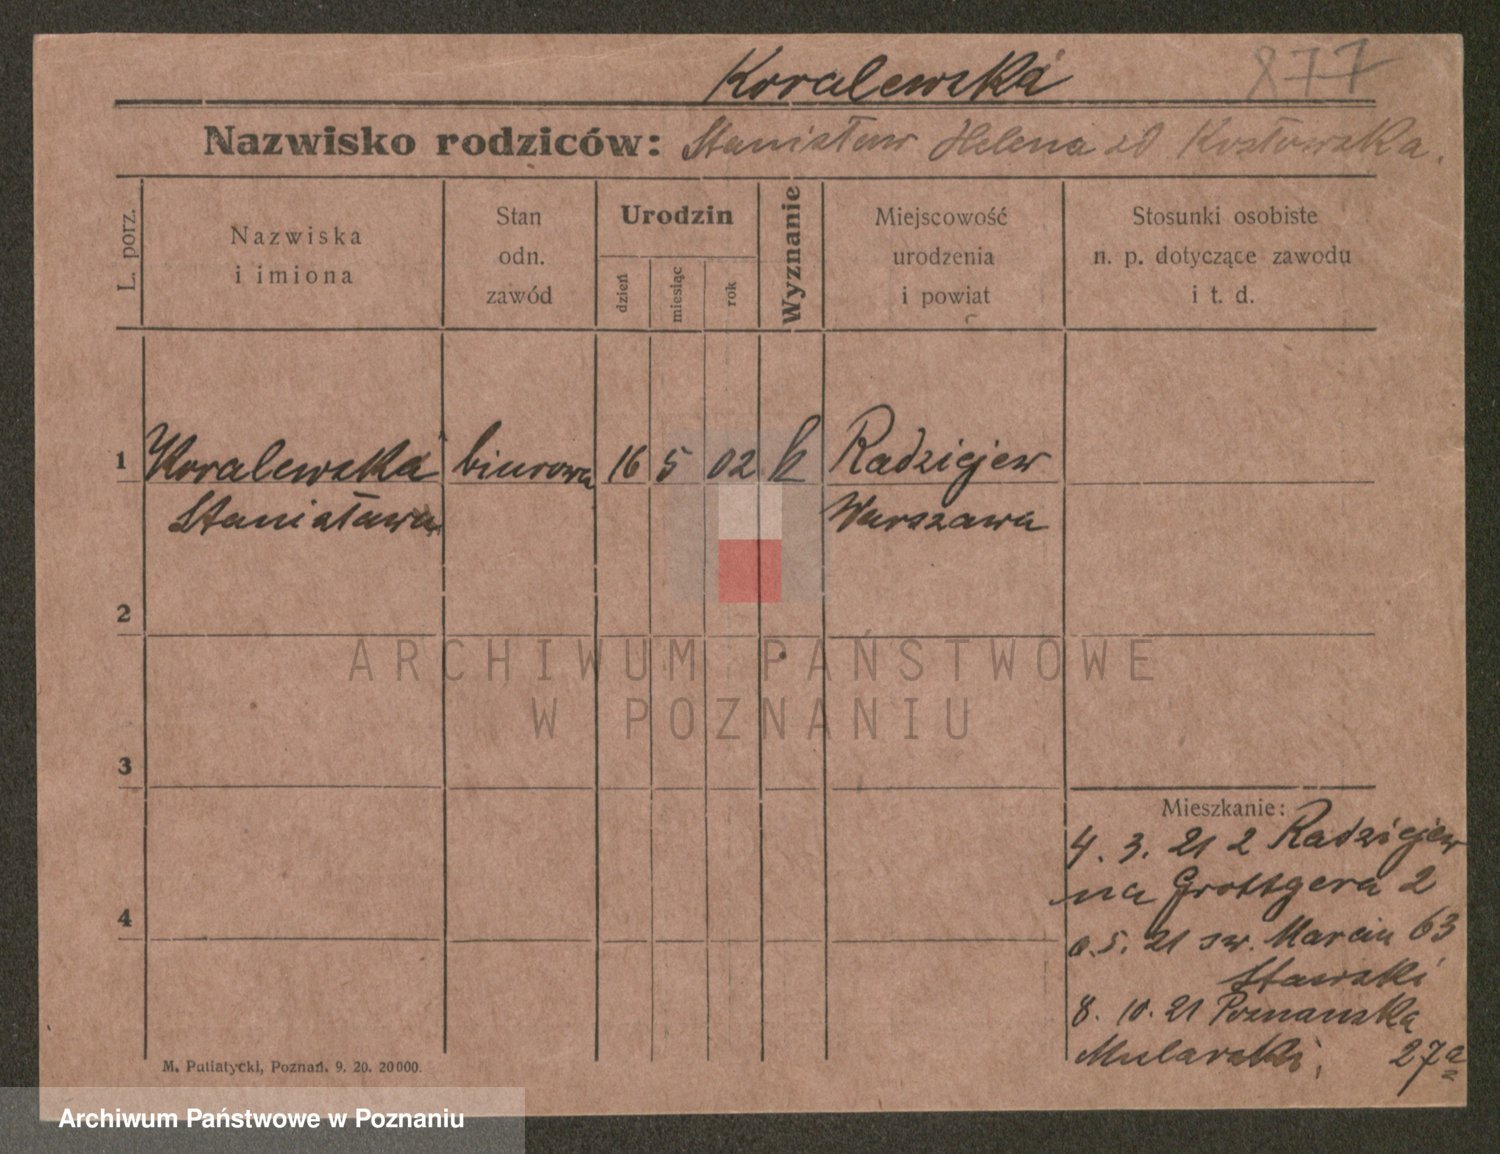 Koralewska 877
Nazwisko rodziców: Stanisław Helena zd Kozłowska.
L. porz.
Nazwiska
i imiona
Stan
odn.
zawód
Urodzin
dzień
miesiąc
rok
Wyznanie
Miejscowość
urodzenia
i powiat
Stosunki osobiste
n. p. dotyczące zawodu
i t. d.
1 Koralewska biurowa 16 5 02 k Radziejew
Stanisława Warszawa
2
3
4
Mieszkanie:
4. 3. 21 z Radziejew
na Grottgera 2
5. 21 św. Marcin 63
Stawski
8. 10. 21 Poznanska
Mularski, 27a
M. Putiatycki, Poznań. 9. 20. 20000.
ARCHIWUM PAŃSTWOWE
W POZNANIU
Archiwum Państwowe w Poznaniu